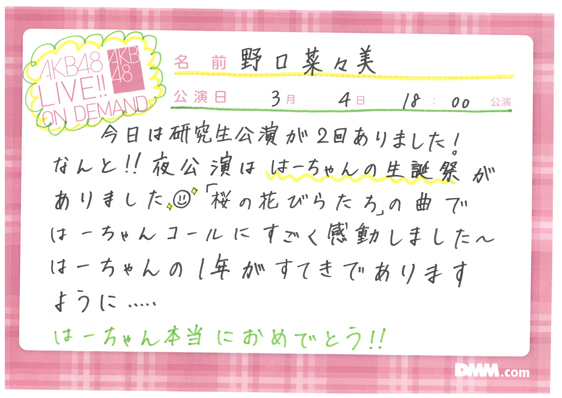 AKB48
LIVE!!
ON DEMAND
AKB
48
名 前 野口菜々美
公演日 3月 4日 18:00 公演
今日は研究生公演が2回ありました!
なんと!!夜公演ははーちゃんの生誕祭が
ありました「桜の花びらたち」の曲で
はーちゃんコールにすごく感動しました〜
はーちゃんの1年がすてきであります
ように.....
はーちゃん本当におめでとう!!
DMM.com